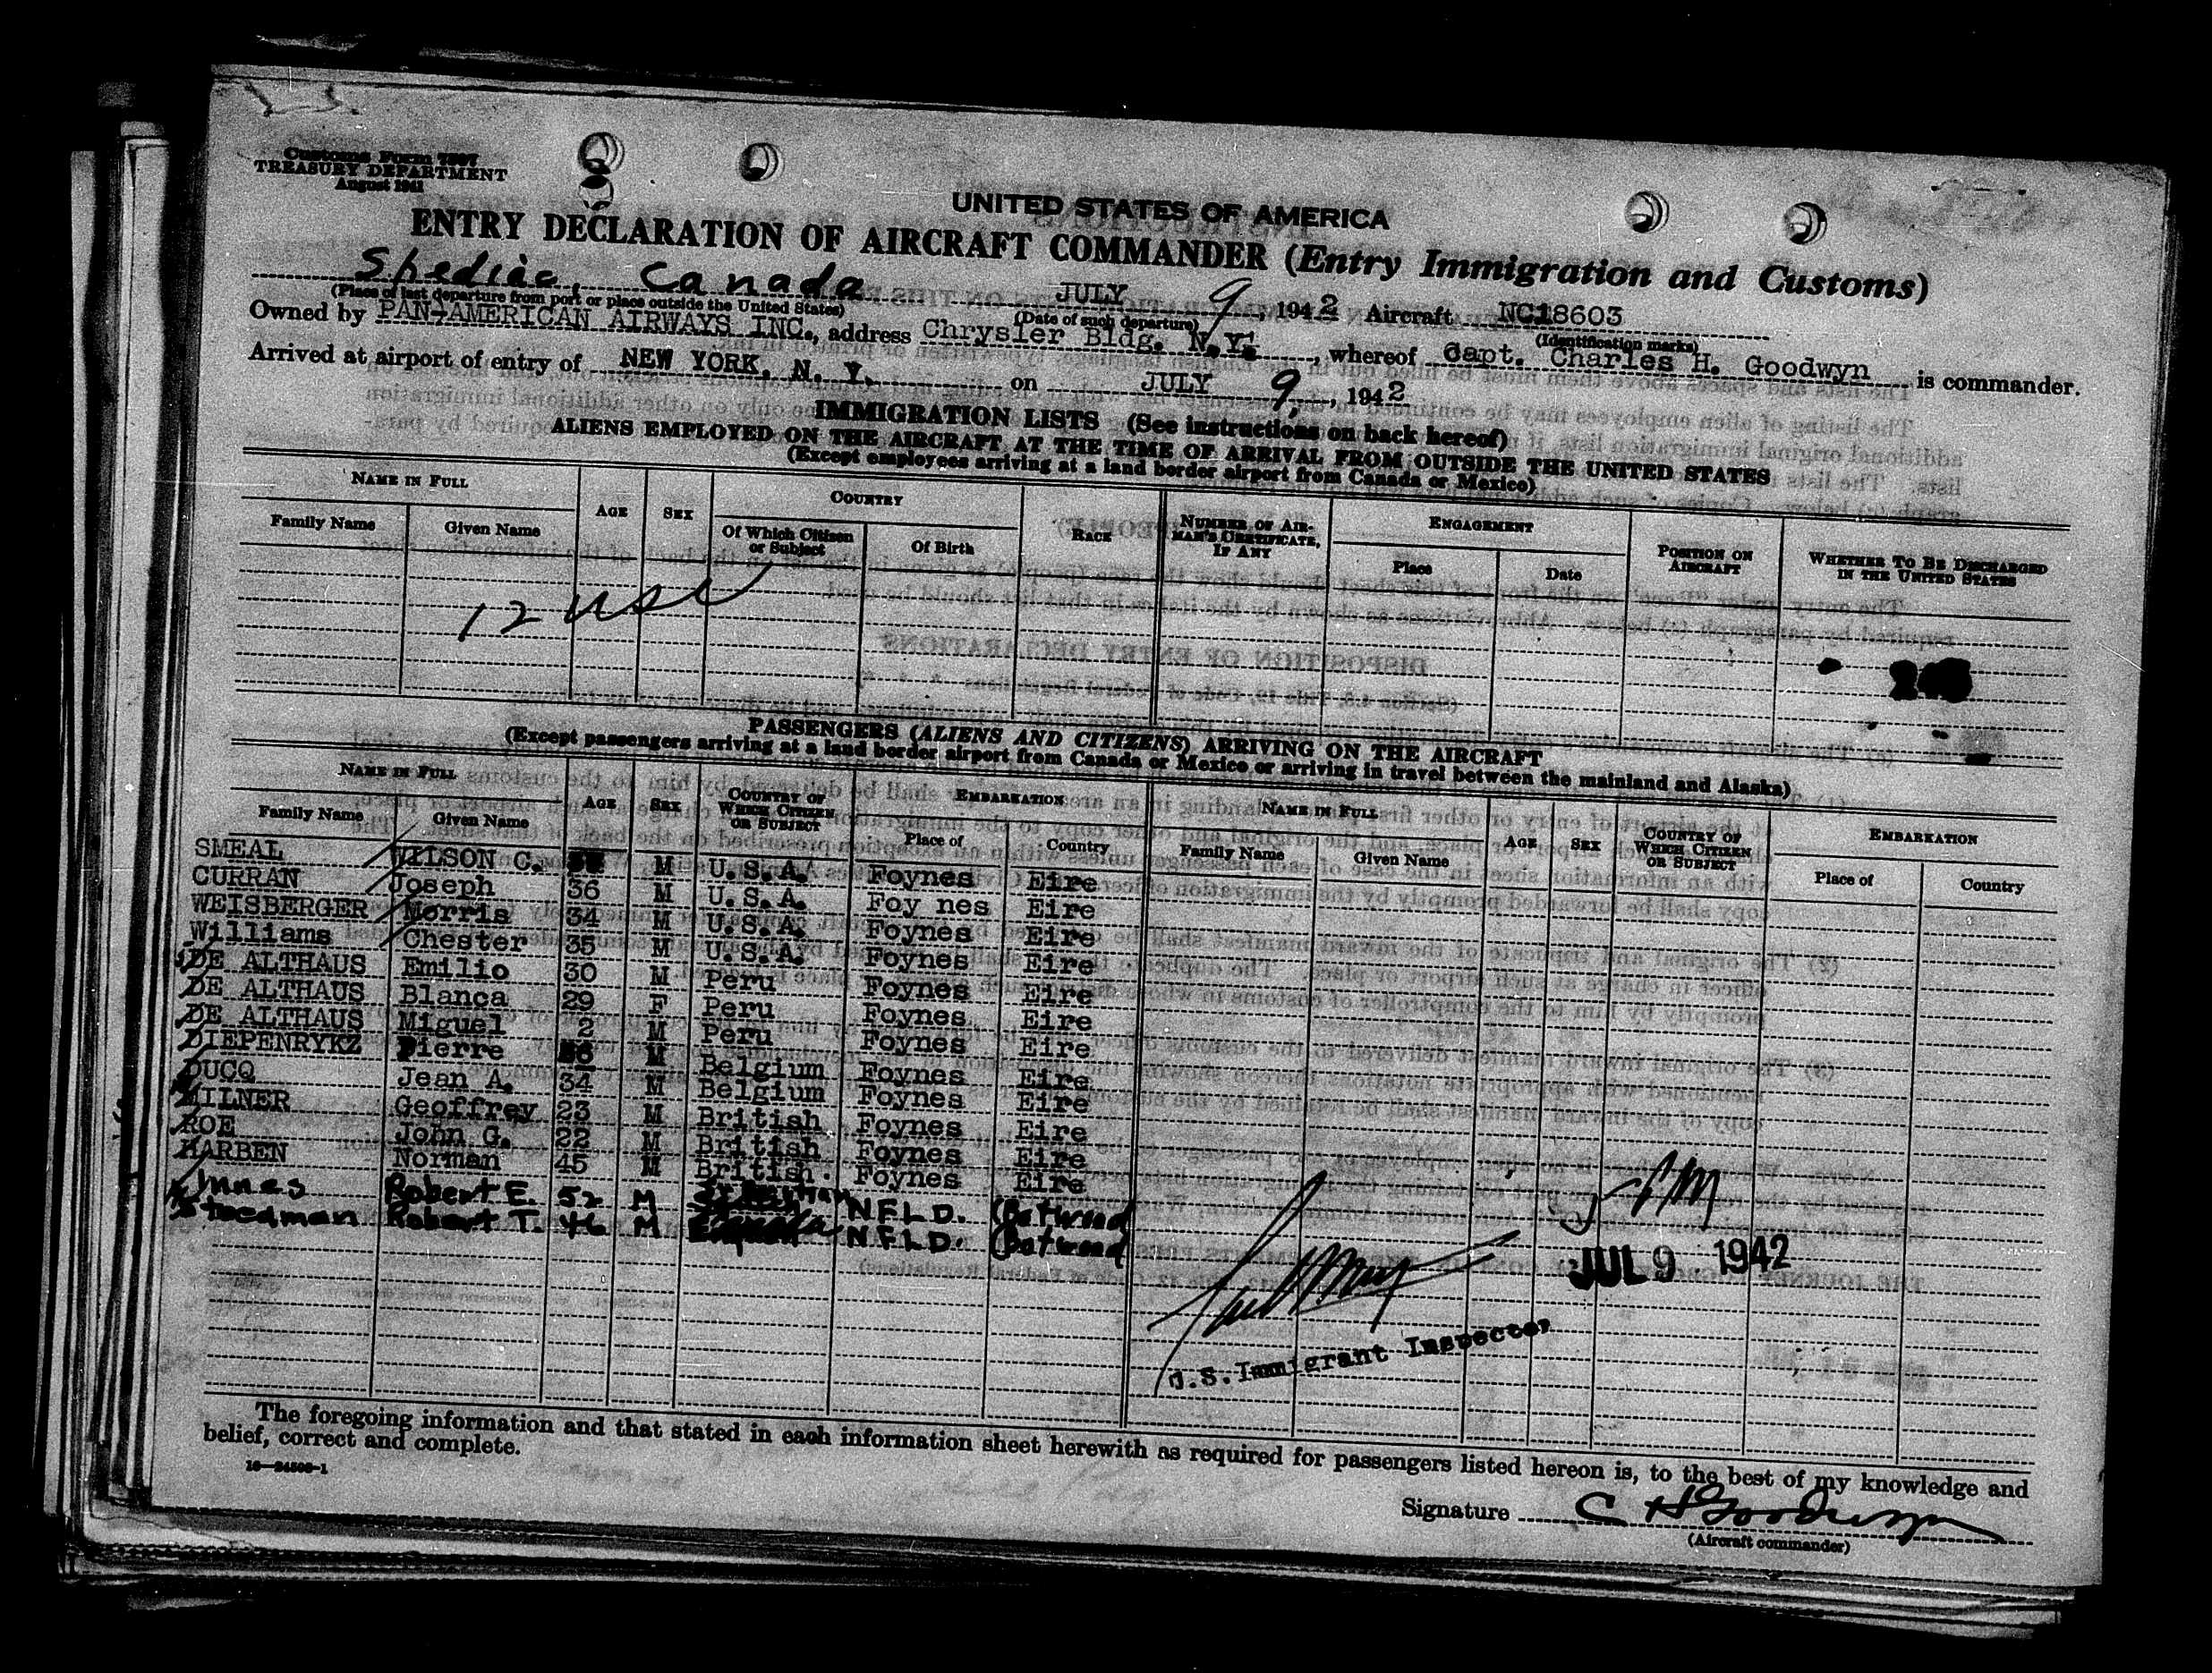 Customs Form 7507
TREASURY DEPARTMENT
August 1941
UNITED STATES OF AMERICA
ENTRY DECLARATION OF AIRCRAFT COMMANDER (Entry Immigration and Customs)
Shediac, Canada JULY 9, 1942 Aircraft NC18603
(Place of last departure from port or place outside the United States) (Date of such departure) (Identification marks)
Owned by PAN-AMERICAN AIRWAYS INC., address Chrysler Bldg. N.Y., whereof Capt. Charles H. Goodwyn is commander.
Arrived at airport of entry of NEW YORK, N. Y. on JULY 9, 1942
IMMIGRATION LISTS (See instructions on back hereof)
ALIENS EMPLOYED ON THE AIRCRAFT AT THE TIME OF ARRIVAL FROM OUTSIDE THE UNITED STATES
(Except employees arriving at a land border airport from Canada or Mexico)
NAME IN FULL AGE SEX COUNTRY RACE NUMBER OF AIRMAN'S CERTIFICATE, IF ANY ENGAGEMENT POSITION ON AIRCRAFT WHETHER TO BE DISCHARGED IN THE UNITED STATES
Family Name Given Name Of Which Citizen or Subject Of Birth Place Date
12 usc
PASSENGERS (ALIENS AND CITIZENS) ARRIVING ON THE AIRCRAFT
(Except passengers arriving at a land border airport from Canada or Mexico or arriving in travel between the mainland and Alaska)
NAME IN FULL AGE SEX COUNTRY OF WHICH CITIZEN OR SUBJECT EMBARKATION NAME IN FULL AGE SEX COUNTRY OF WHICH CITIZEN OR SUBJECT EMBARKATION
Family Name Given Name Place of Country Family Name Given Name Place of Country
SMEAL WILSON C. M U.S.A. Foynes Eire
CURRAN Joseph 36 M U.S.A. Foy nes Eire
WEISBERGER Morris 34 M U.S.A. Foynes Eire
Williams Chester 35 M U.S.A. Foynes Eire
DE ALTHAUS Emilio 30 M Peru Foynes Eire
DE ALTHAUS Blanca 29 F Peru Foynes Eire
DE ALTHAUS Miguel 2 M Peru Foynes Eire
DIEPENRYKZ Pierre M Belgium Foynes Eire
DUCQ Jean A. 34 M Belgium Foynes Eire
MILNER Geoffrey 23 M British Foynes Eire
ROE John G. 22 M British Foynes Eire
HARBEN Norman 45 M British Foynes Eire
Innes Robert E. 52 M NFLD. (Botwood
Stoedman Robert T. 46 M NFLD. (Botwood
JUL 9 1942
U.S. Immigrant Inspector
The foregoing information and that stated in each information sheet herewith as required for passengers listed hereon is, to the best of my knowledge and
belief, correct and complete.
16—24506-1
Signature C H Goodwyn
(Aircraft commander)